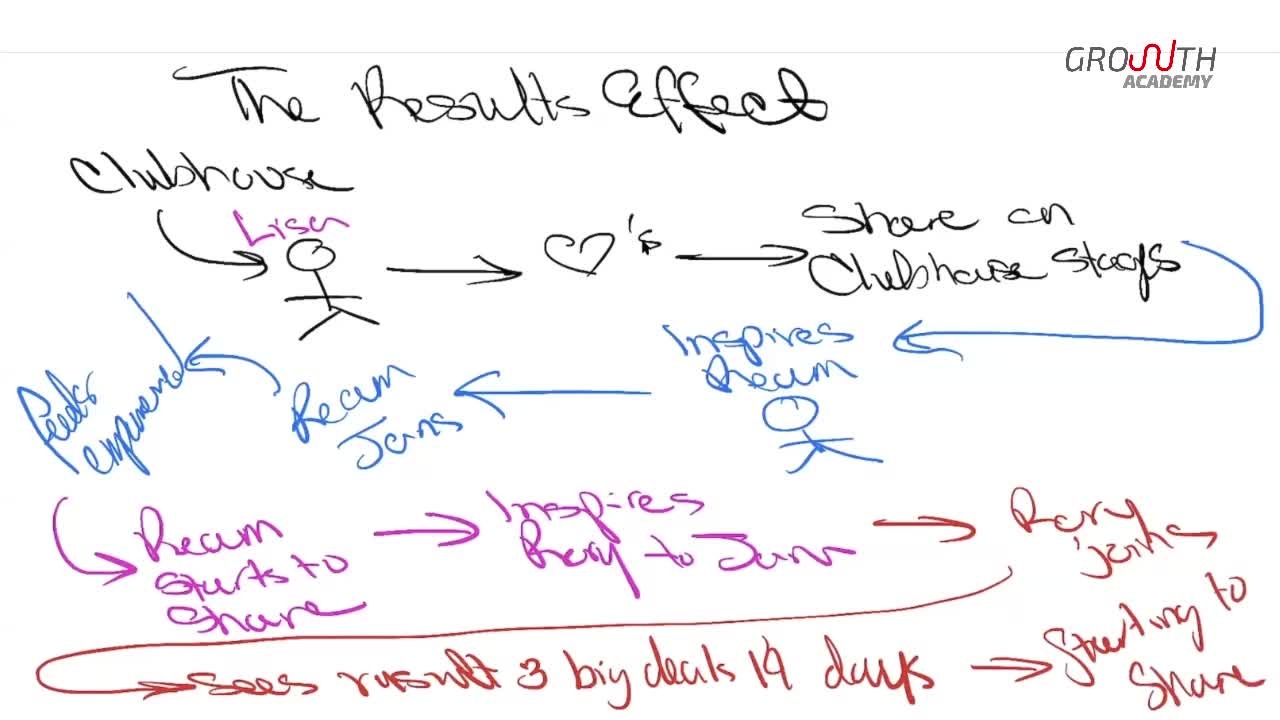 GROWTH
ACADEMY
The Results Effect
Clubhouse
Lisa
♡'s
Share on
Clubhouse Stages
Inspires
Ream
Ream
Joins
Feeds
experience
Ream
Starts to
Share
Inspires
Rory to Join
Rory
joins
sees result 3 big deals 14 days
Starting to
Share